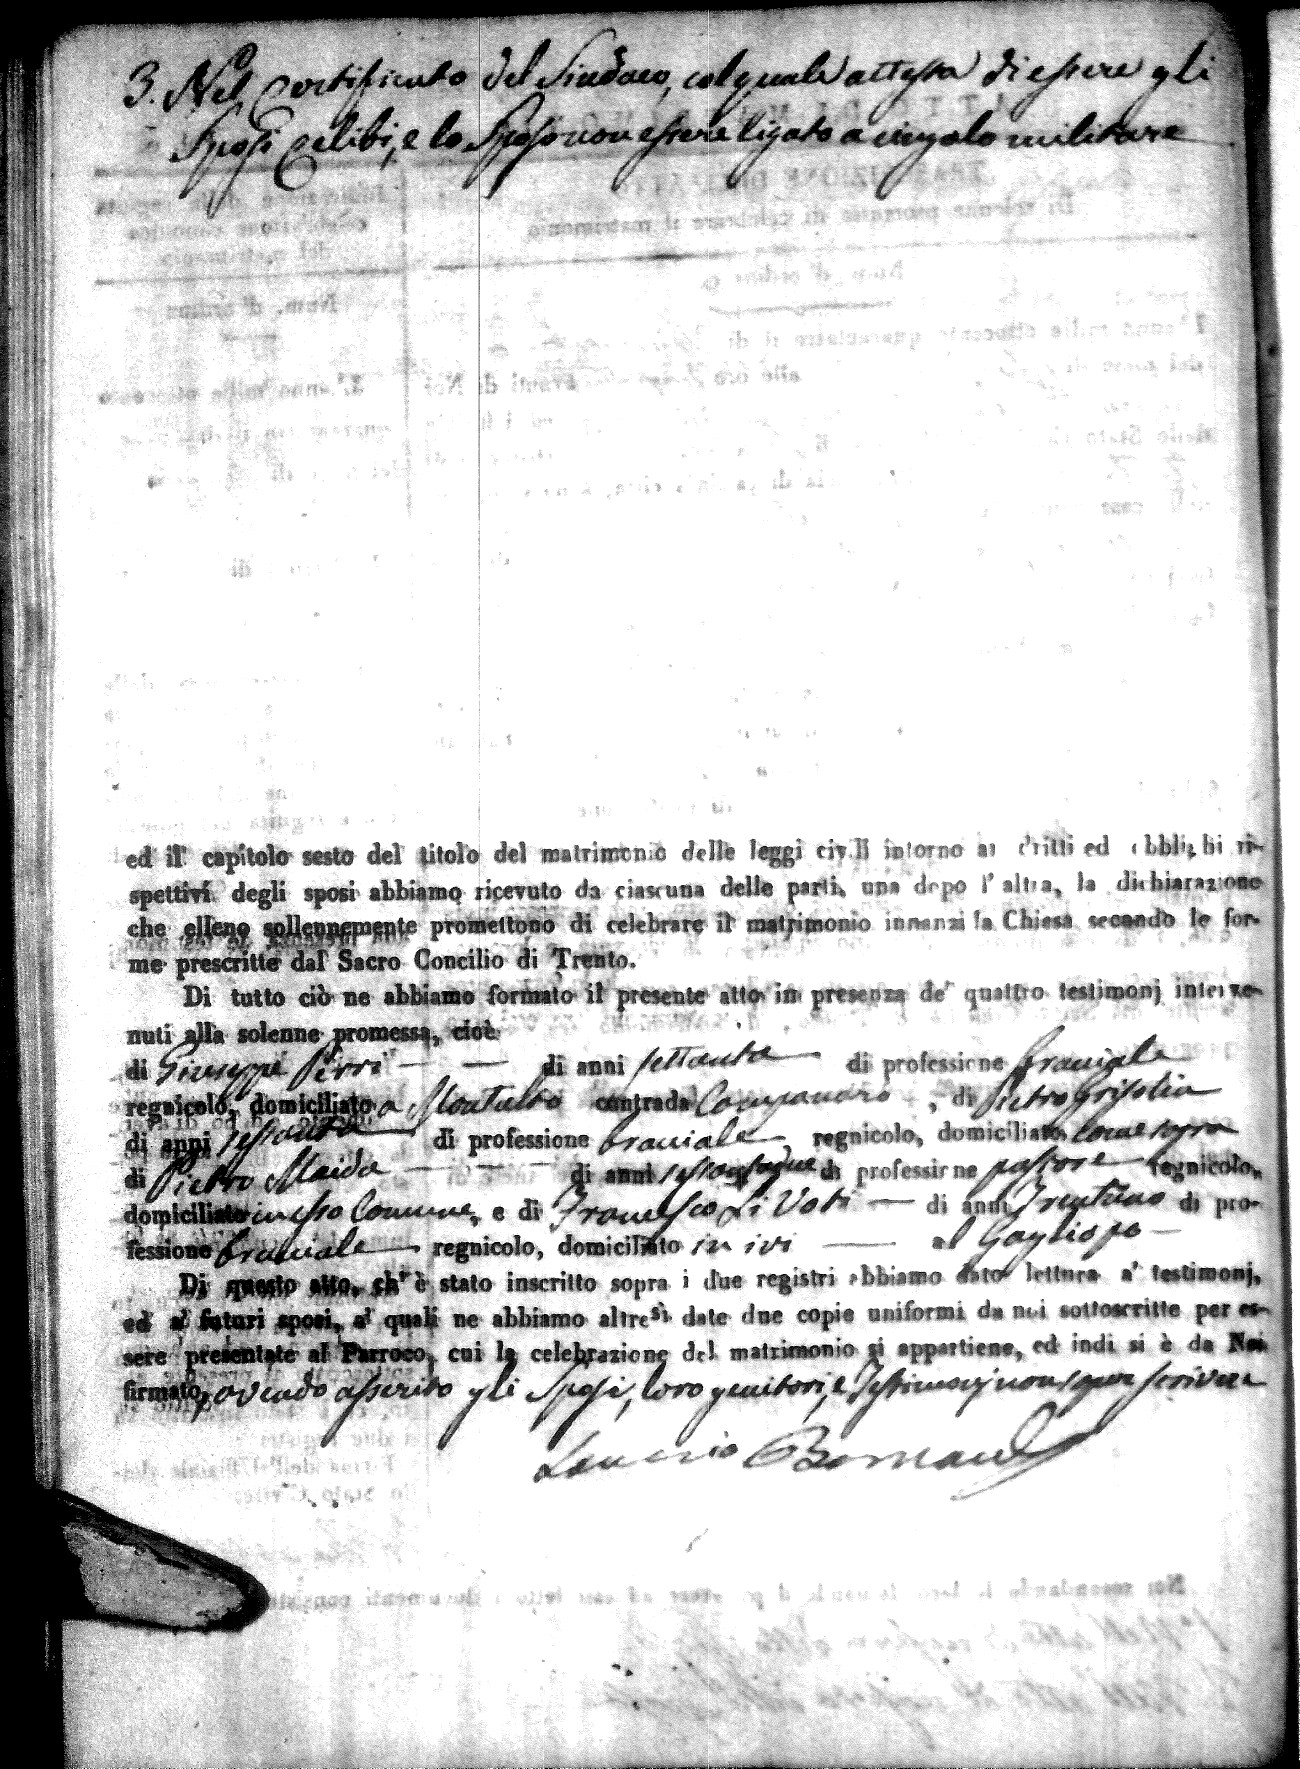 3. Nel Certificato del Sindaco, col quale attessa di essere gli
Sposi Celibi, e lo Sposo non essere ligato a vingolo militare
ed il capitolo sesto del titolo del matrimonio delle leggi civili intorno ai dritti ed obblighi ri-
spettivi degli sposi abbiamo ricevuto da ciascuna delle parti, una dopo l' altra, la dichiarazione
che elleno sollennemente promettono di celebrare il matrimonio innanzi la Chiesa secondo le for-
me prescritte dal Sacro Concilio di Trento.
Di tutto ciò ne abbiamo formato il presente atto in presenza de' quattro testimonj interve-
nuti alla solenne promessa, cioè
di Giuseppe Pirri — — di anni settanta — di professione braciale
regnicolo, domiciliato a Montalto contrada , di Pietro Grisolia
di anni sessanta di professione braciale, regnicolo, domiciliato come sopra
di Pietro Maida — — — di anni di professione pastore regnicolo,
domiciliato in esso Comune, e di Francesco Li Voti — di anni Trentuno di pro-
fessione braciale regnicolo, domiciliato in ivi — al Gagliopo —
Di questo atto, ch' è stato inscritto sopra i due registri abbiamo dato lettura a' testimonj,
ed a' futuri sposi, a' quali ne abbiamo altresì date due copie uniformi da noi sottoscritte per es-
sere presentate al Parroco, cui la celebrazione del matrimonio si appartiene, ed indi si è da Noi
firmato, avendo asserito gli Sposi, loro genitori, e Testimonj non saper scrivere